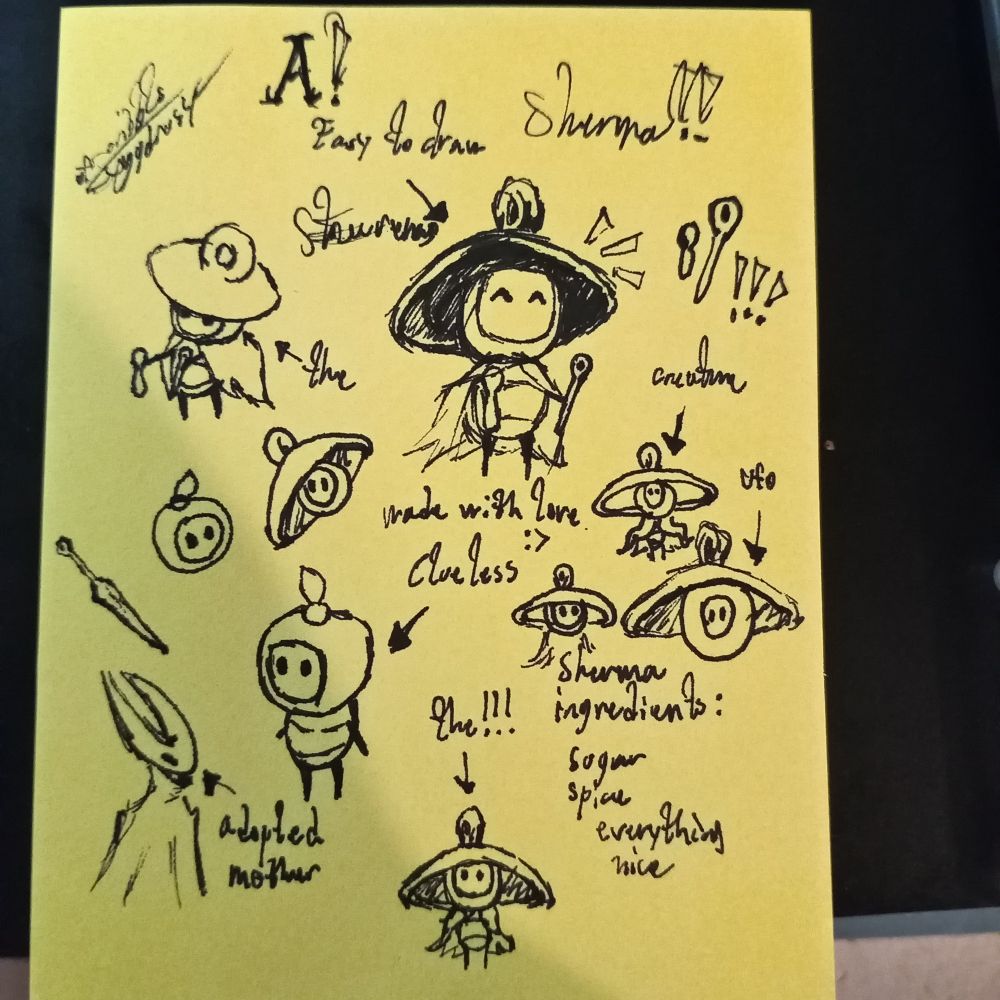 A!
Easy to draw
Sherma!!!
!!!
the
creature
ufo
made with love
:>
Clueless
Sherma
ingredients:
sugar
spice
everything
nice
the!!!
adopted
mother